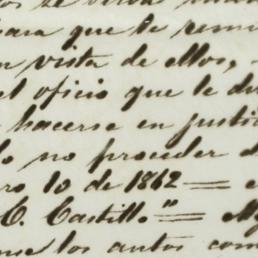 para que se remi
n vista de ellos,
el oficio que le di
hacerse en justi
lo no proceder
ro 10 de 1862 —
C. Castillo." —
los autos com